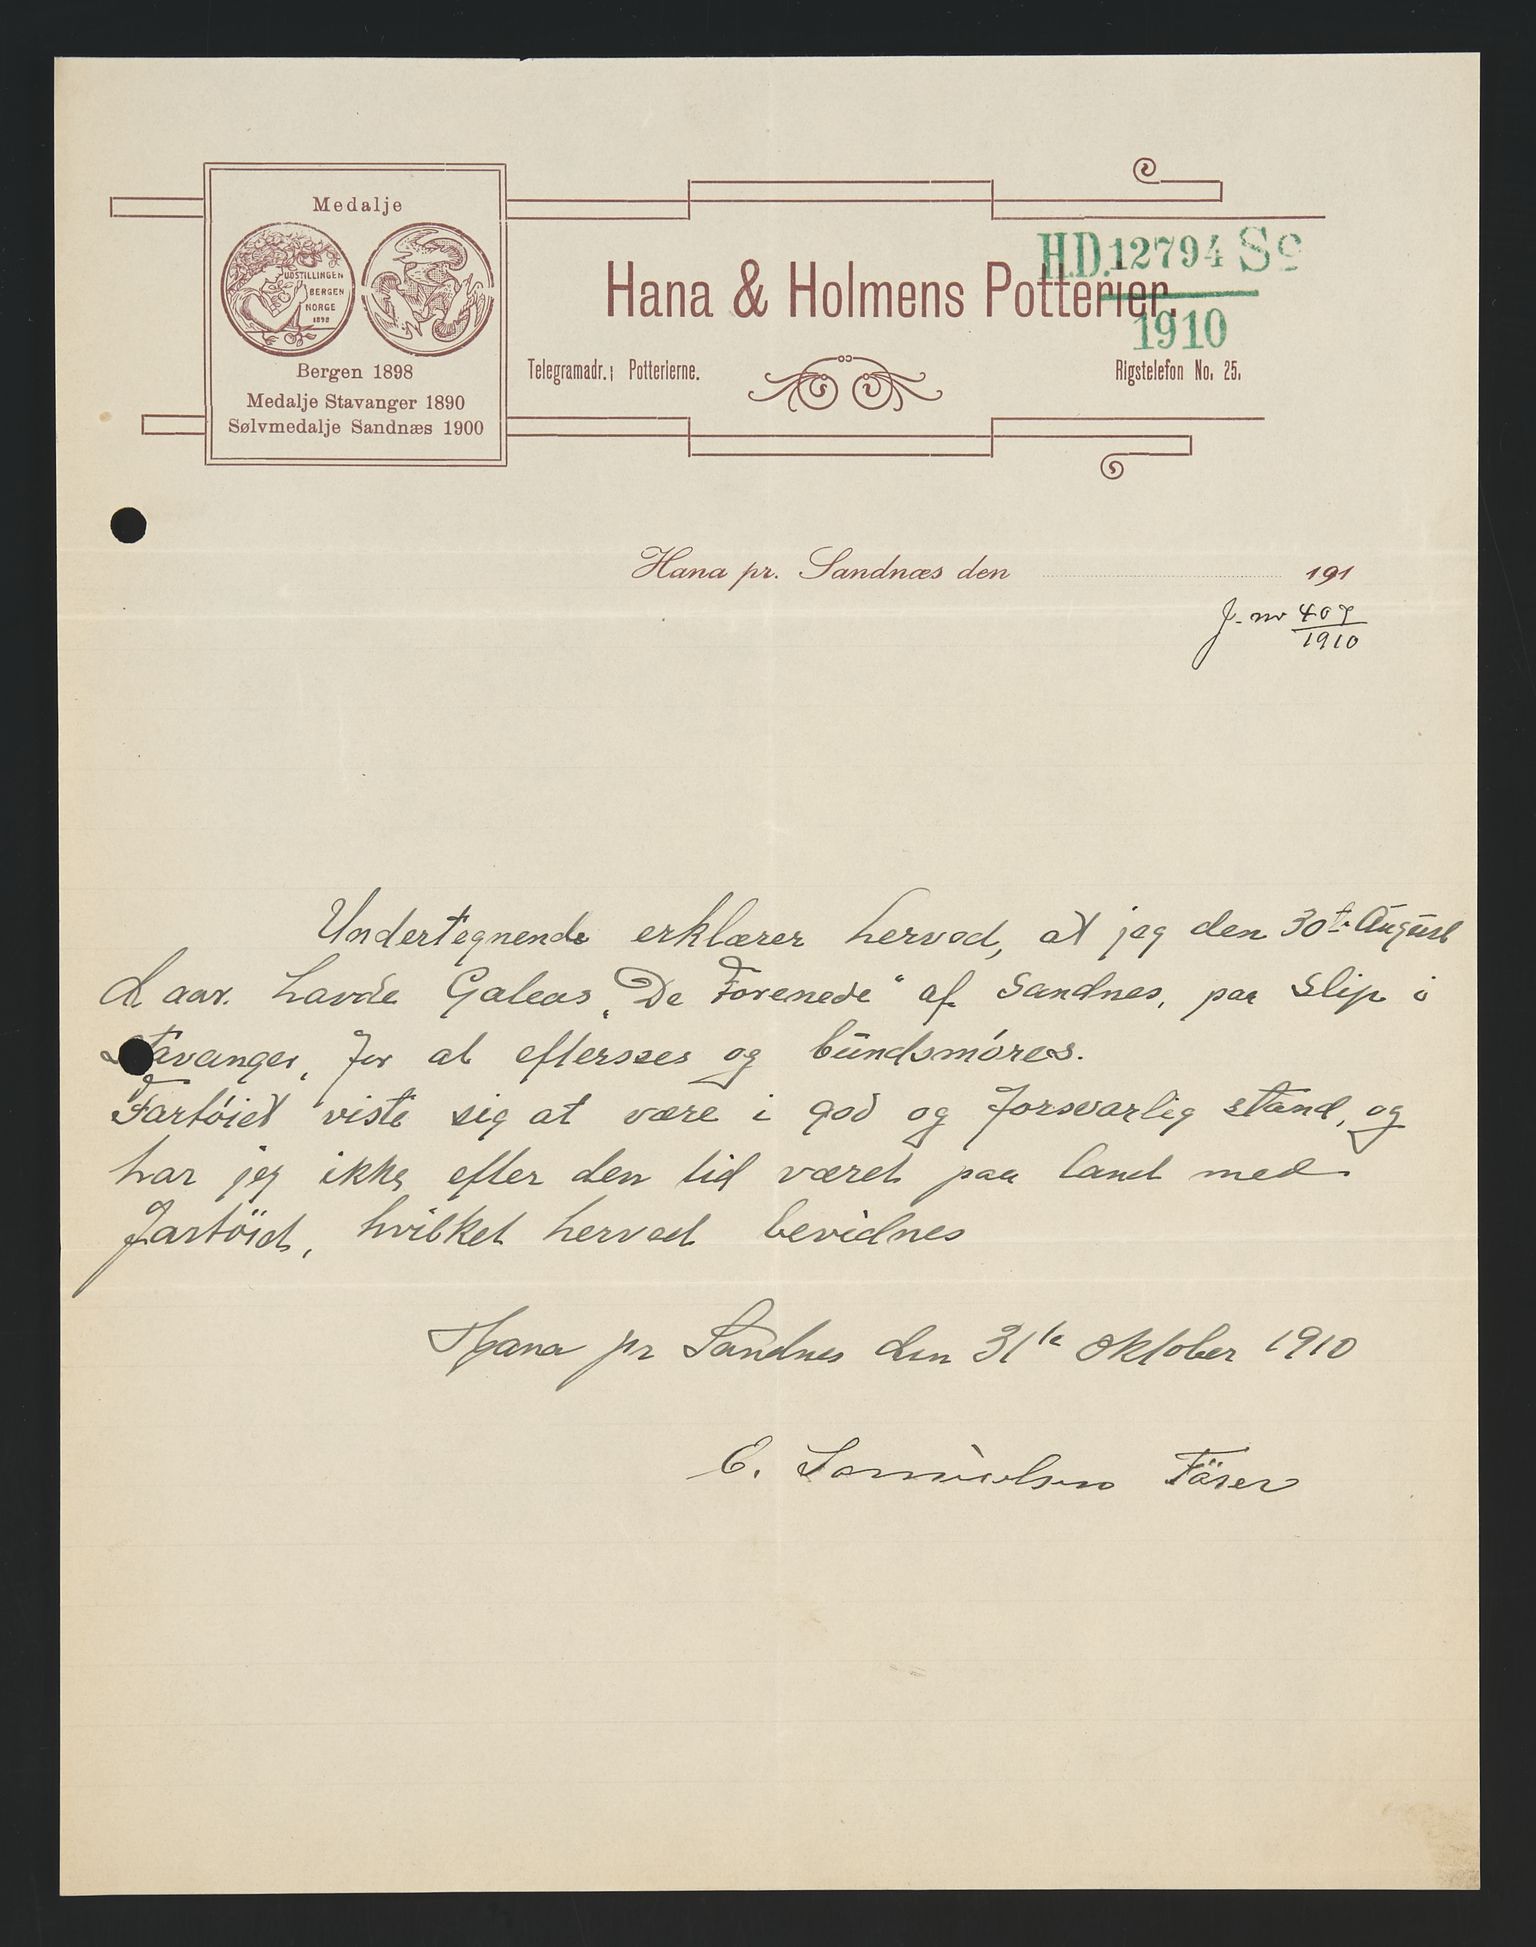 Medalje
UDSTILLINGEN
BERGEN
NORGE
1898
Bergen 1898
Medalje Stavanger 1890
Sølvmedalje Sandnæs 1900
H.D. 12794 Sø
1910
Hana & Holmens Potterier.
Telegramadr.: Potterierne.
Rigstelefon No. 25.
Hana pr. Sandnæs den 191
J. nr 407
1910
Undertegnende erklærer herved, at jeg den 30te August
d aar. havde Galeas „De Forenede“ af Sandnes, paa Slip i
Stavanger, for at eftersees og bundsmöres.
Fartöiet viste sig at være i god og forsvarlig stand, og
har jeg ikke efter den tid været paa land med
fartöiet, hvilket herved bevidnes
Hana pr Sandnes den 31te Oktober 1910
E. Samuelsen Förer